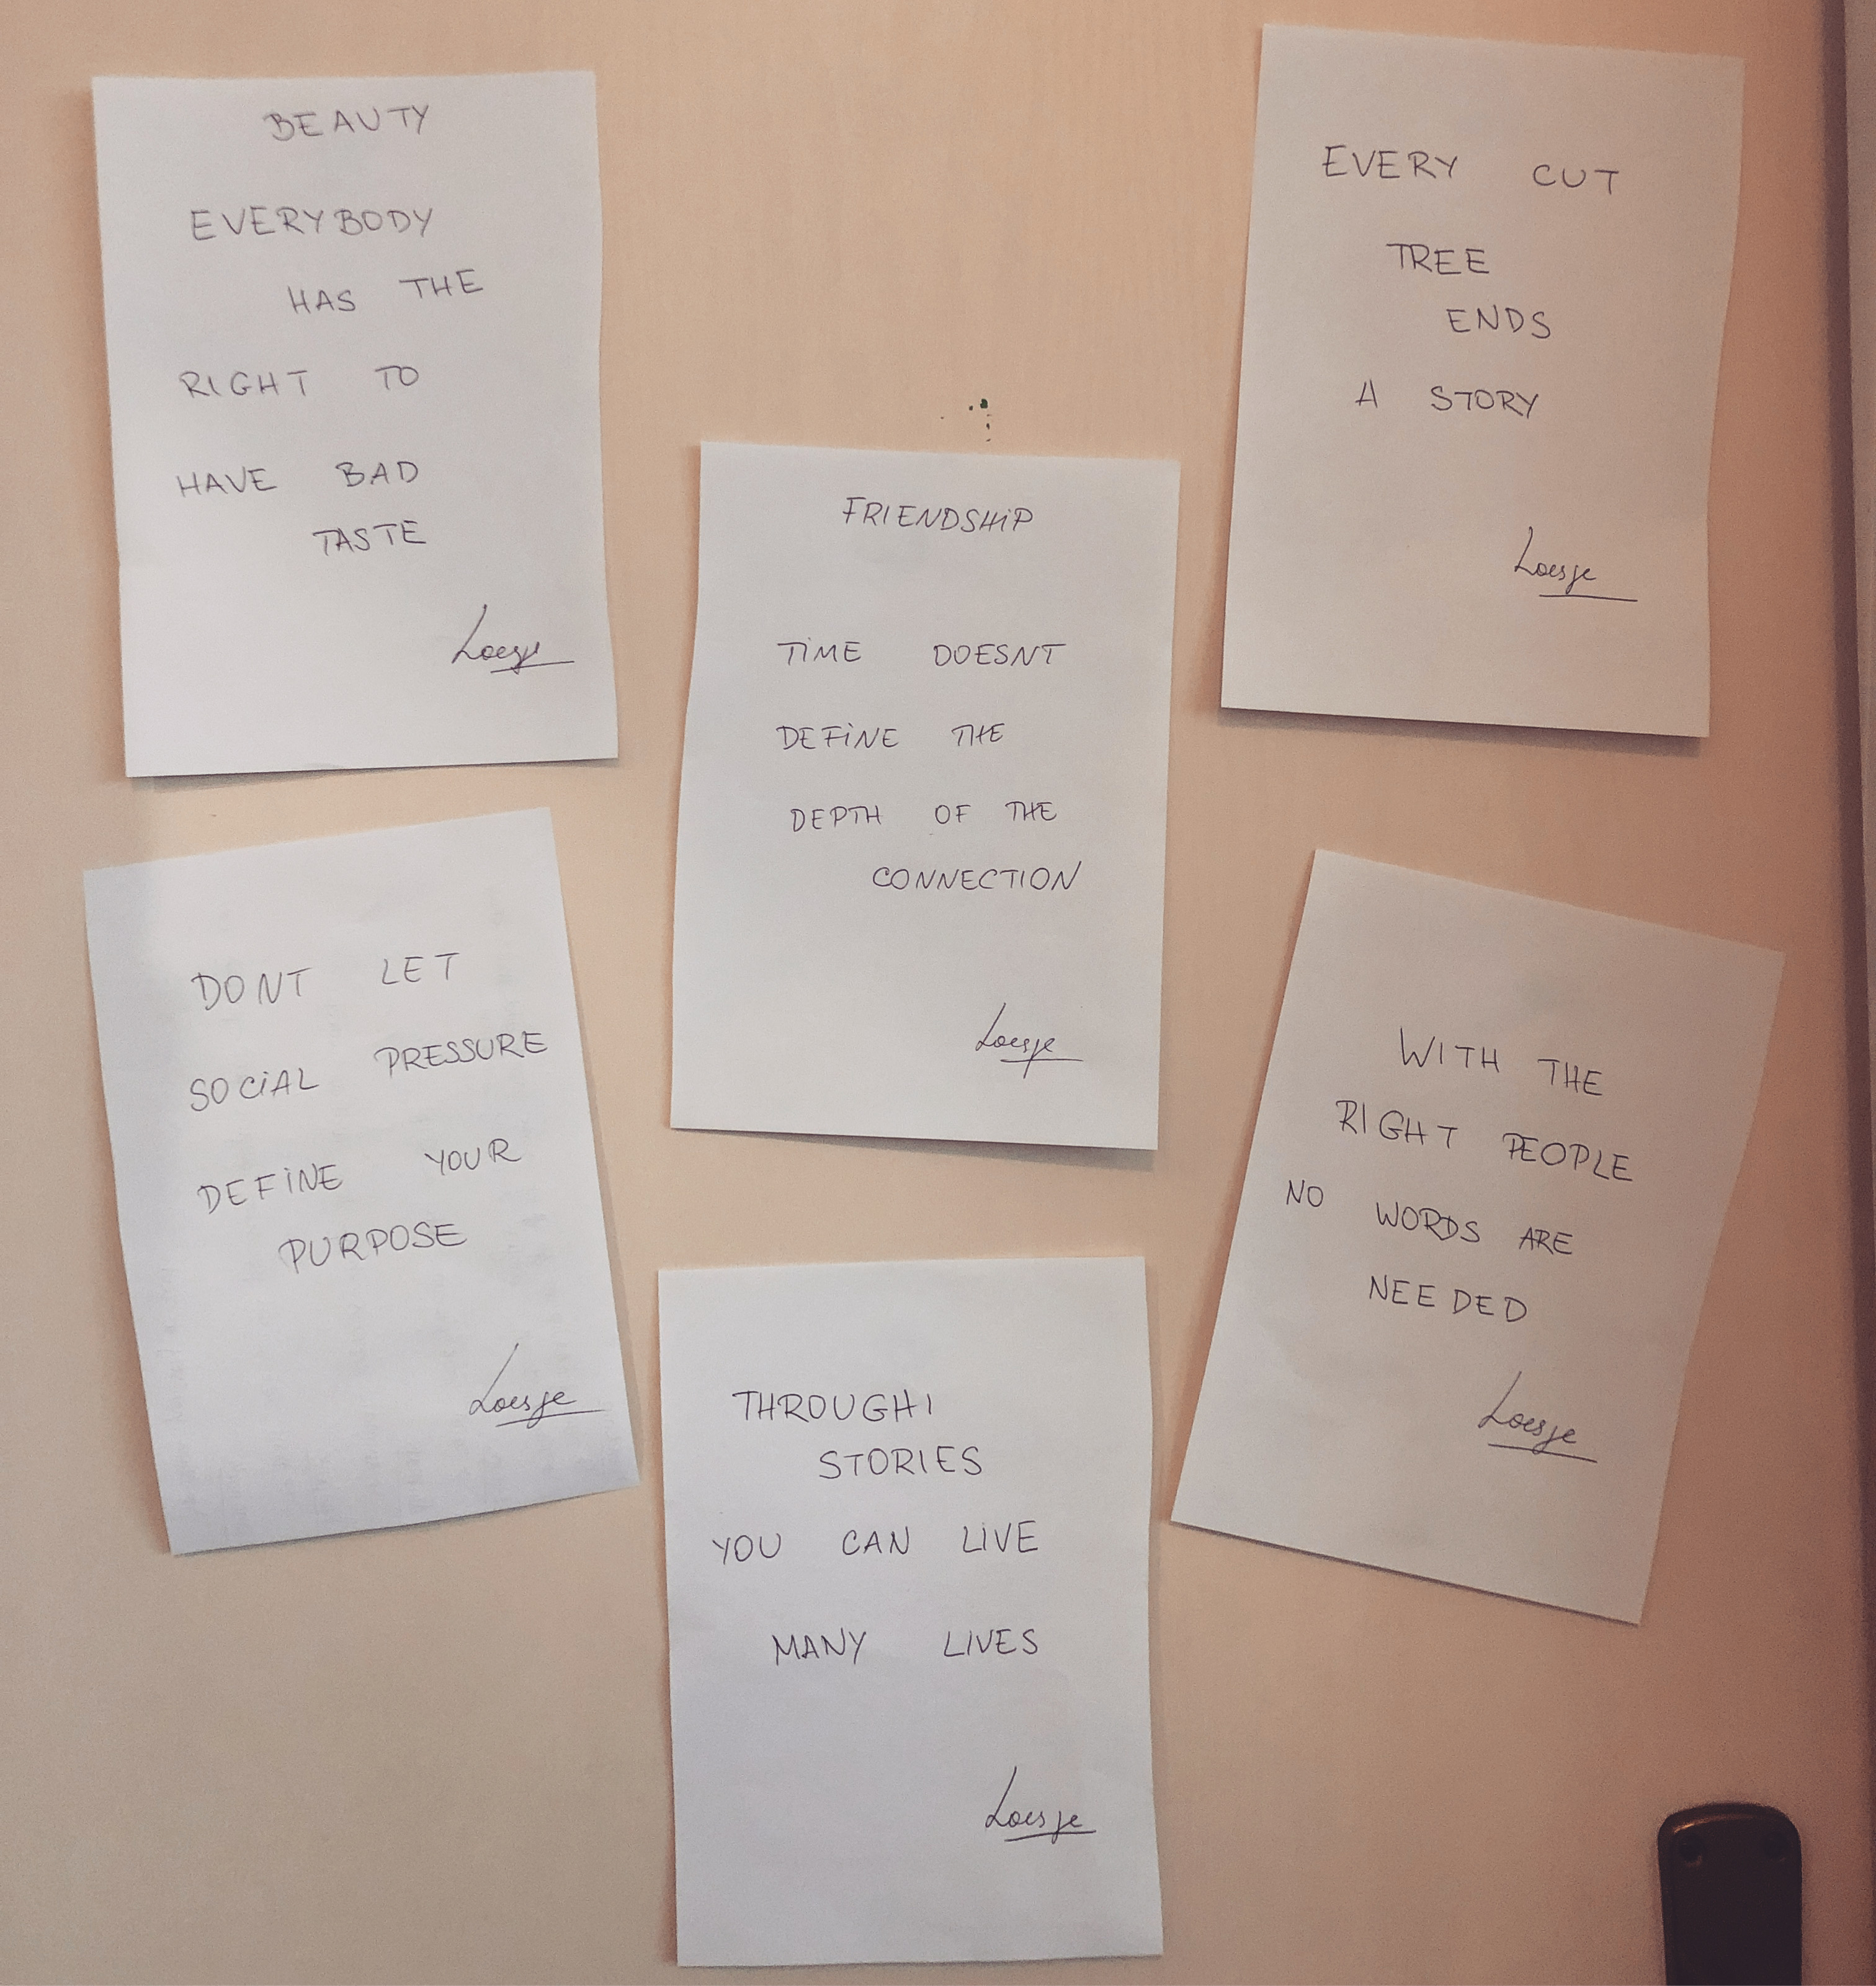 BEAUTY
EVERYBODY
HAS THE
RIGHT TO
HAVE BAD
TASTE
Loesje
EVERY CUT
TREE
ENDS
A STORY
Loesje
FRIENDSHIP
TIME DOESNT
DEFINE THE
DEPTH OF THE
CONNECTION
Loesje
DONT LET
SOCIAL PRESSURE
DEFINE YOUR
PURPOSE
Loesje
WITH THE
RIGHT PEOPLE
NO WORDS ARE
NEEDED
Loesje
THROUGH
STORIES
YOU CAN LIVE
MANY LIVES
Loesje